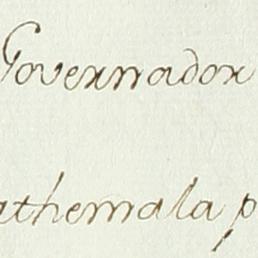 Governador
athemala p